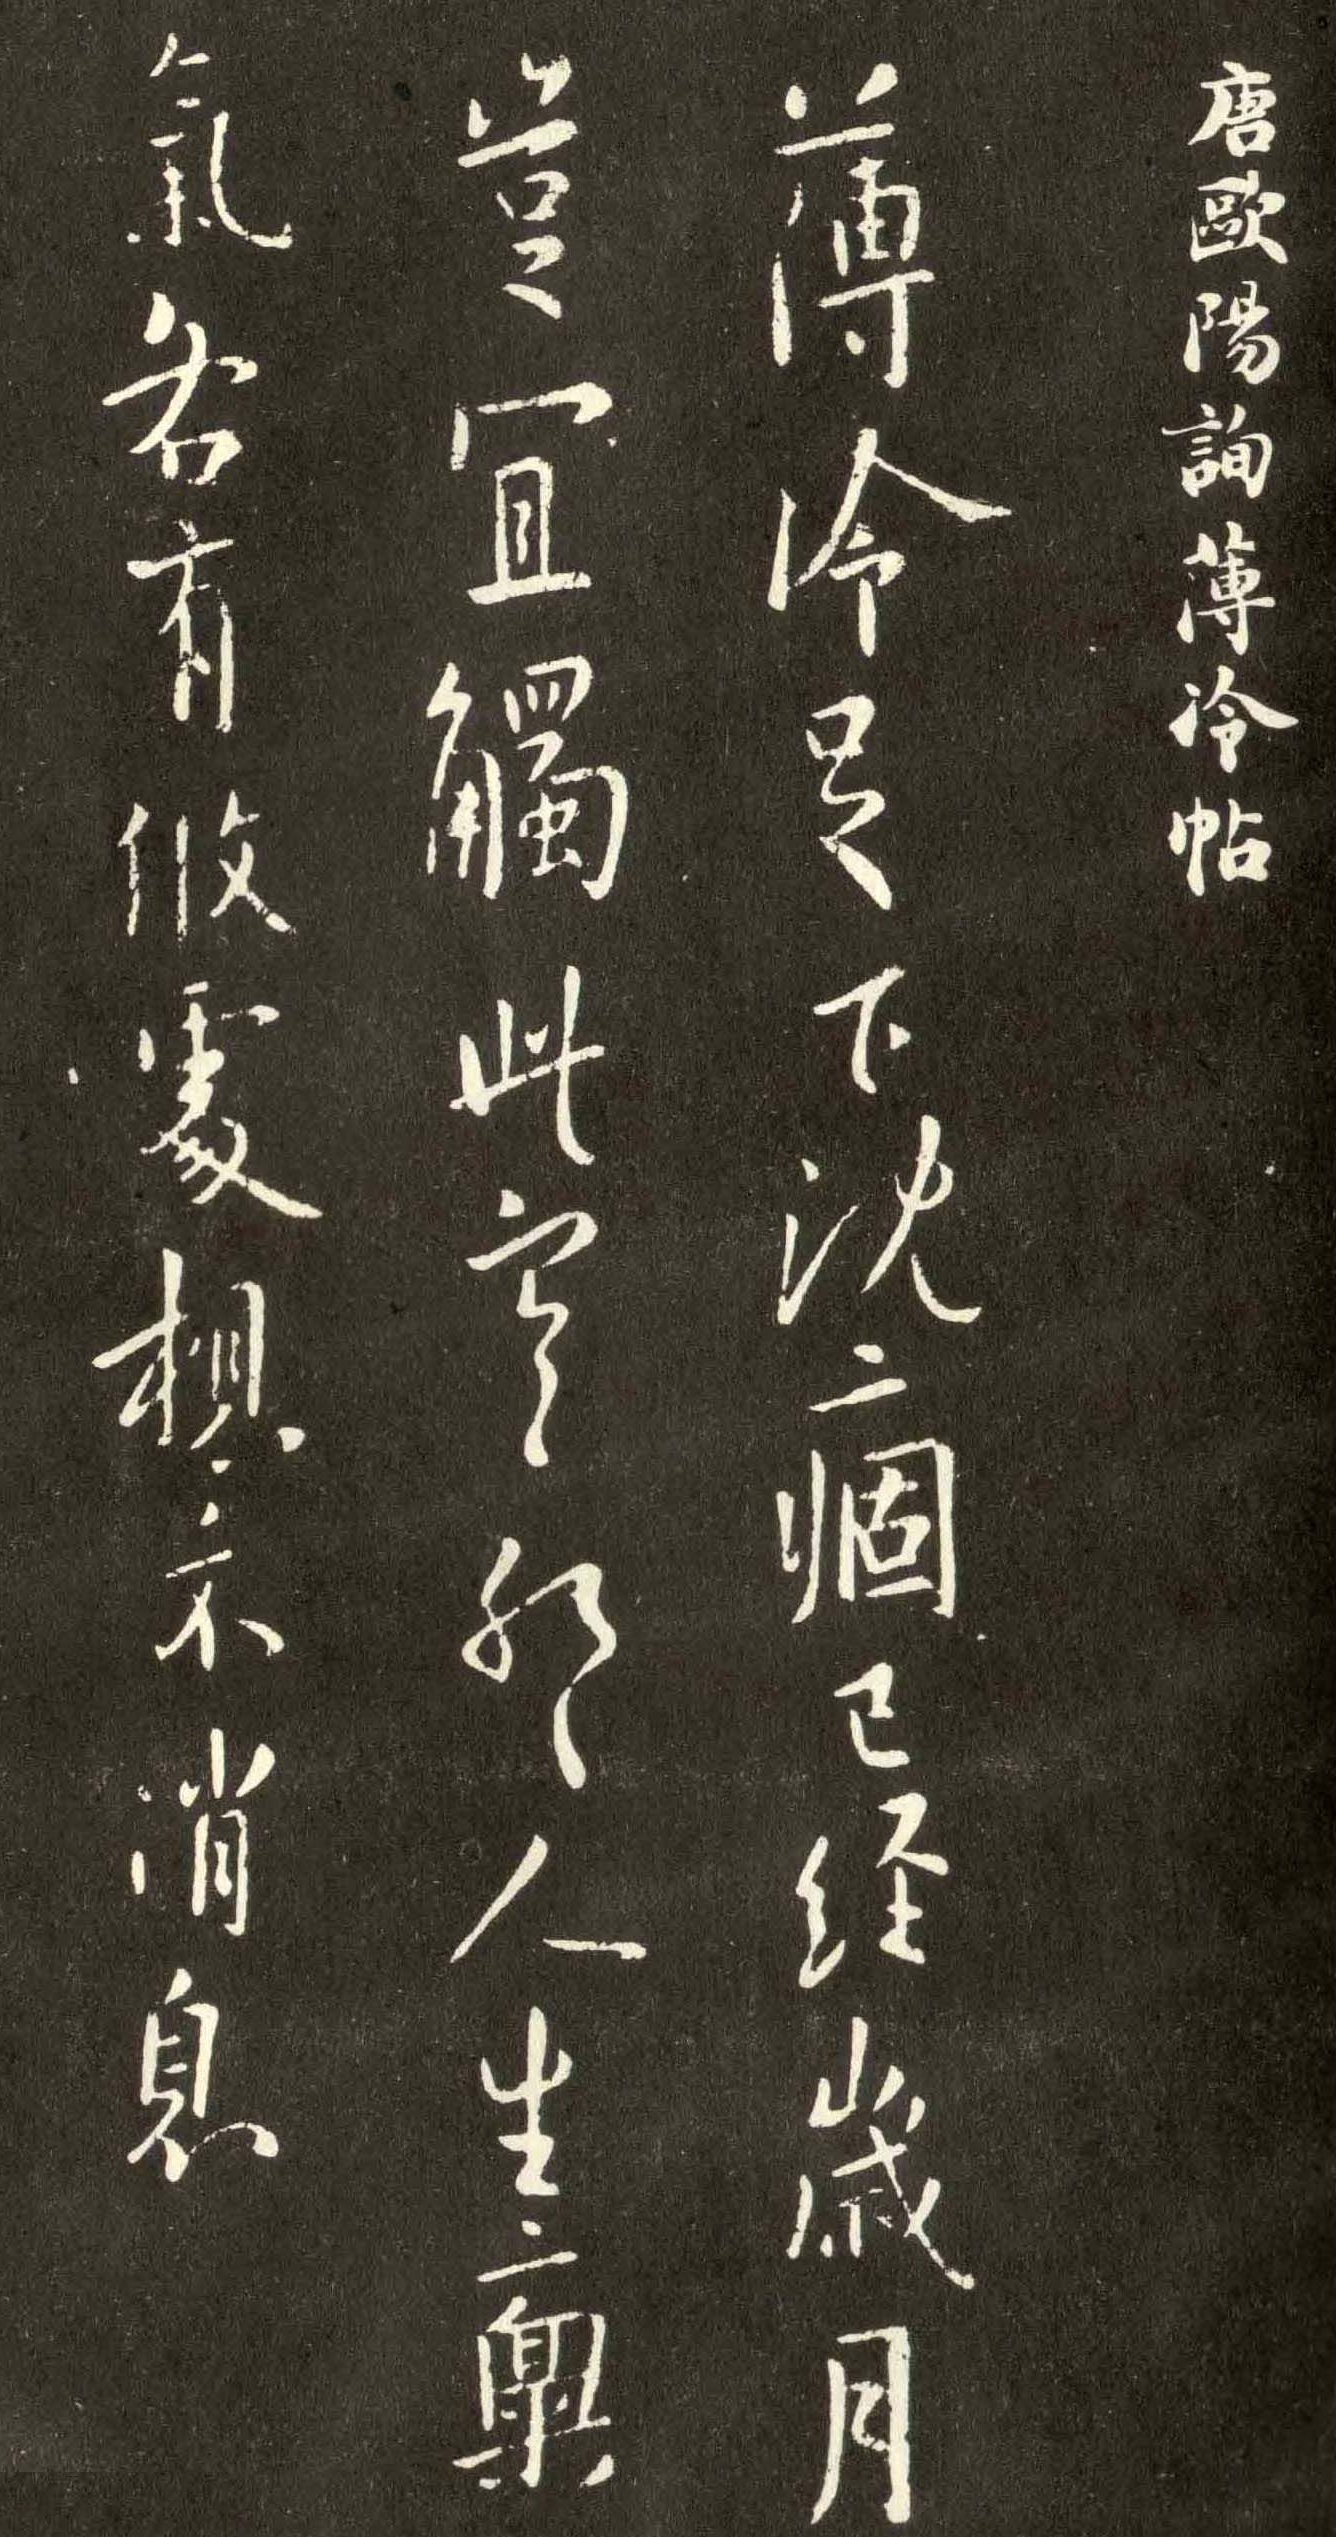 唐歐陽詢薄冷帖
薄冷足下沈痼已經歲月
豈宜觸此寒耶人生禀
氣各有攸處想示消息